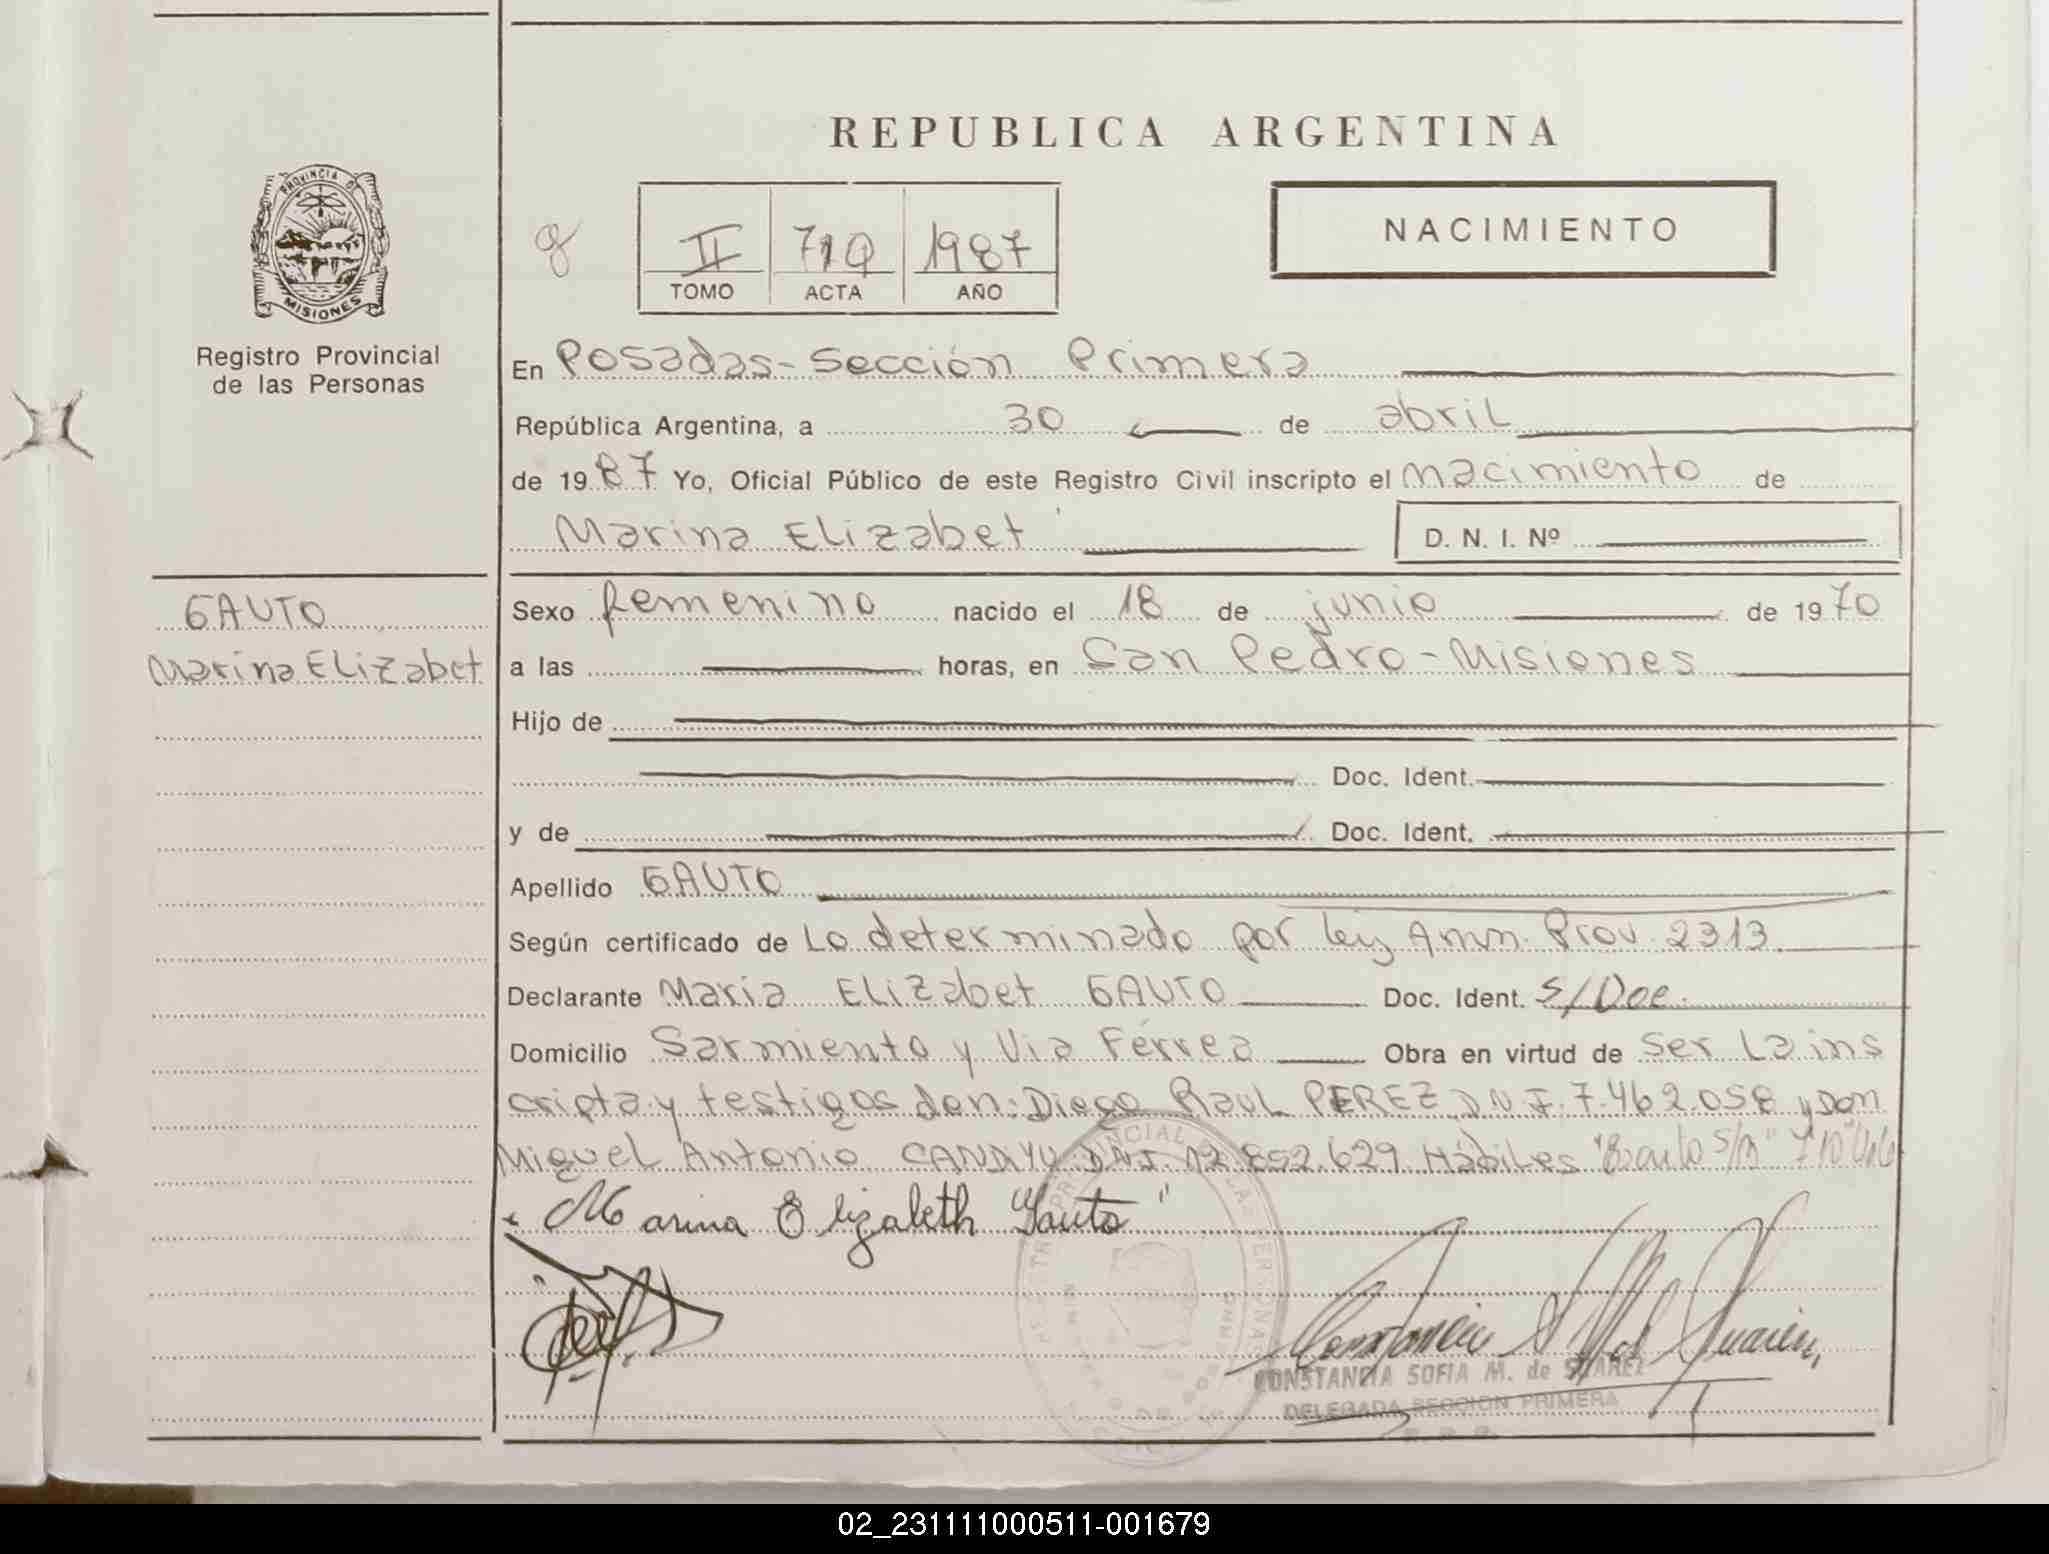 REPUBLICA ARGENTINA
PROVINCIA DE
MISIONES
Registro Provincial
de las Personas
II 710 1987
TOMO ACTA AÑO
NACIMIENTO
En Posadas-Sección Primera
República Argentina, a 30 de abril
de 1987 Yo, Oficial Público de este Registro Civil inscripto el nacimiento de
Marina Elizabet D. N. I. Nº
GAUTO
Marina Elizabet
Sexo femenino nacido el 18 de junio de 1970
a las horas, en San Pedro-Misiones
Hijo de
Doc. Ident.
y de Doc. Ident.
Apellido GAUTO
Según certificado de Lo determinado por ley Amn. Prov. 2313.
Declarante Maria Elizabet GAUTO Doc. Ident. S/Doc.
Domicilio Sarmiento y Via Férrea Obra en virtud de ser La ins
cripta y testigos don: Diego Raul PEREZ D.N.I. 7.462.058 y Don
Miguel Antonio D.N.I. 12.852.629 Hábiles
"Marina Elizabeth Gauto"
CONSTANCIA SOFIA M. de SUAREZ
DELEGADA SECCION PRIMERA
02_231111000511-001679